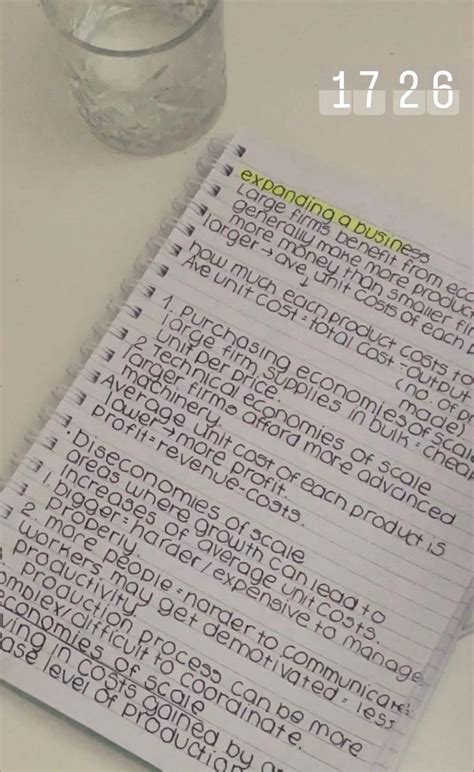 17 26
expanding a business
Large firms benefit from
generally make more
more money than smaller
larger → ave. unit costs of each
how much each product costs to
Ave unit cost = total cost ÷ output
(no. of
made)
1. Purchasing economies of scale
large firm supplies in bulk =
unit per price.
2. Technical economies of scale
larger firms afford more advanced
machinery.
Average unit cost of each product is
lower → more profit.
profit = revenue - costs.
Diseconomies of scale
areas where growth can lead to
increases of average unit costs.
1. bigger = harder/expensive to manage
properly.
2. more people = harder to communicate
workers may get demotivated = less
productivity.
production process can be more
complex/difficult to coordinate.
economies of scale
in costs gained by
level of production